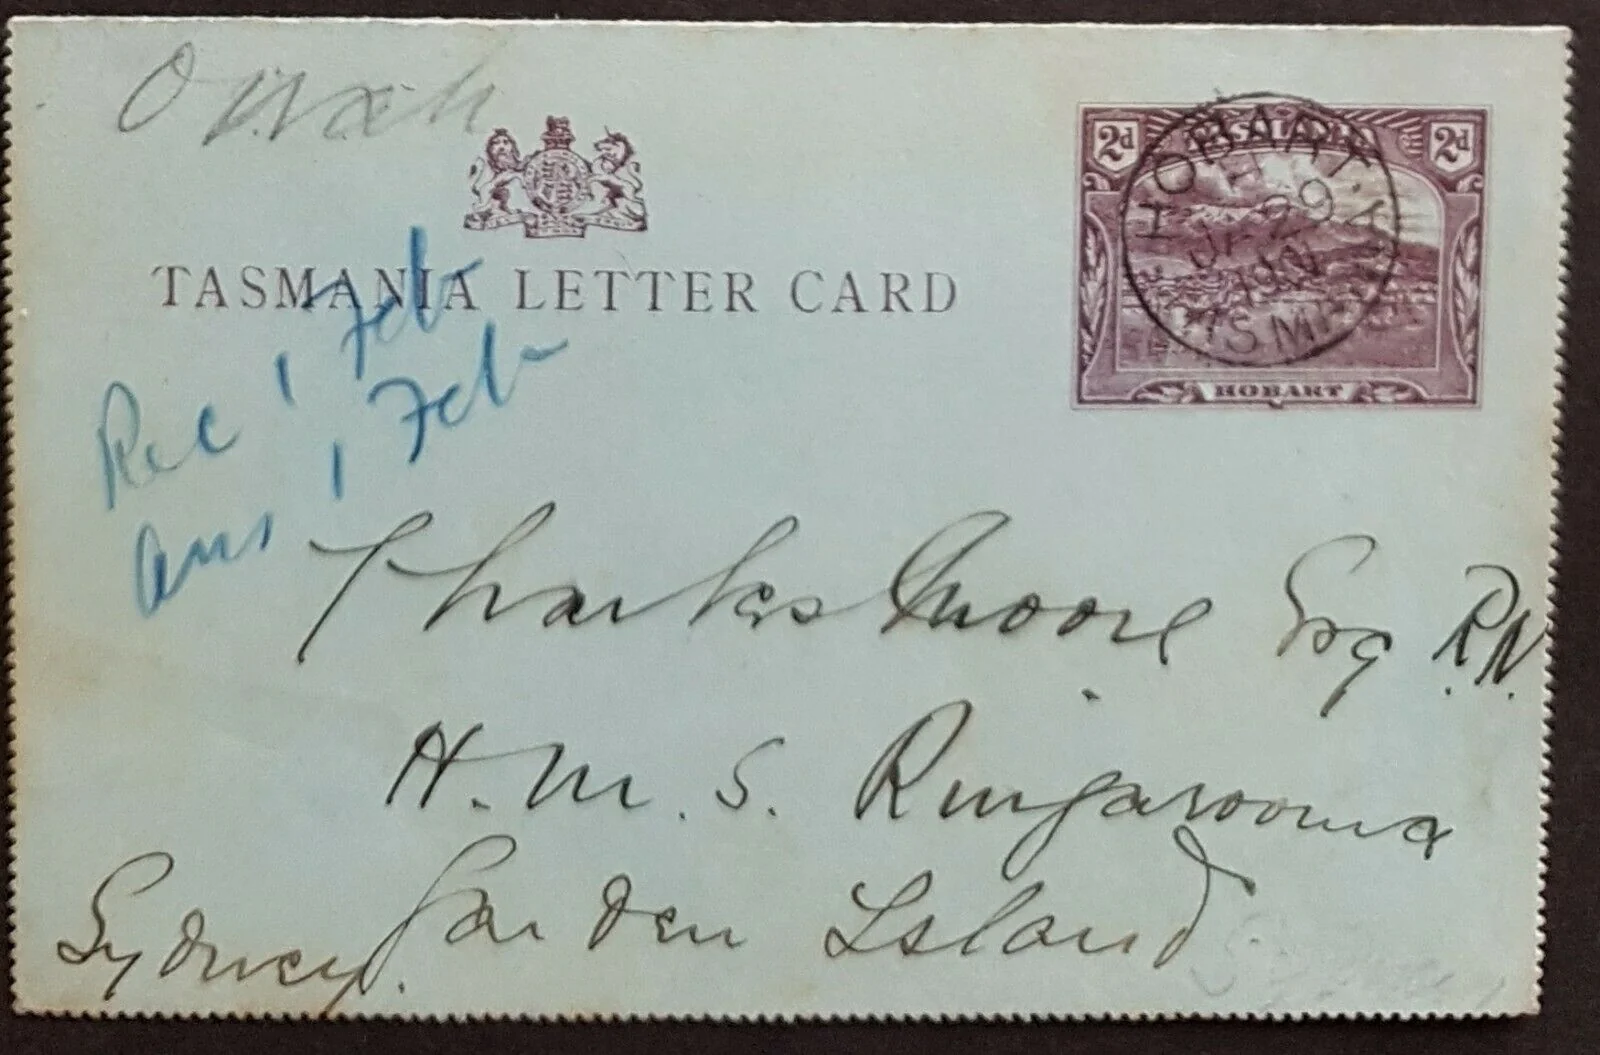 TASMANIA LETTER CARD
2d TASMANIA 2d
HOBART
HOBART
JA 29
TASMANIA
Rec 1 Feb
ans 1 Feb
Charles Moore Esq R.N.
H.M.S. Ringarooma
Garden Island
Sydney.